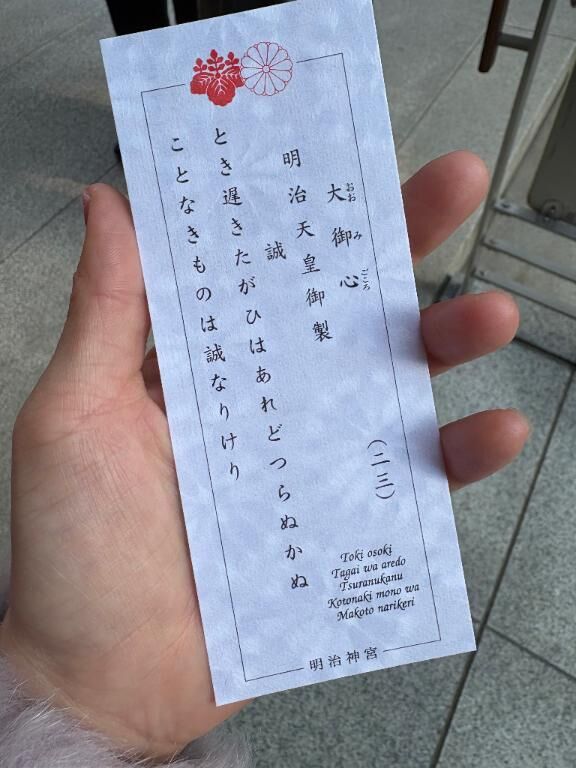 大御心
おおみごころ
(二三)
明治天皇御製
誠
とき遅きたがひはあれどつらぬかぬ
ことなきものは誠なりけり
Toki osoki
Tagai wa aredo
Tsuranukanu
Kotonaki mono wa
Makoto narikeri
明治神宮